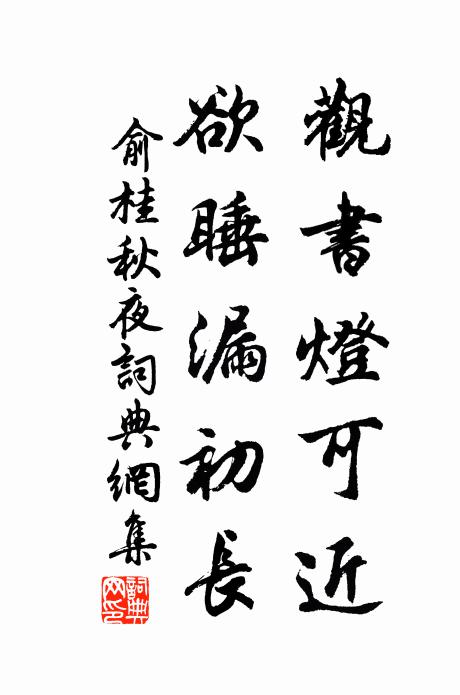 觀書燈可近
欲睡漏初長
俞桂秋夜詞典網集
詞典
网印